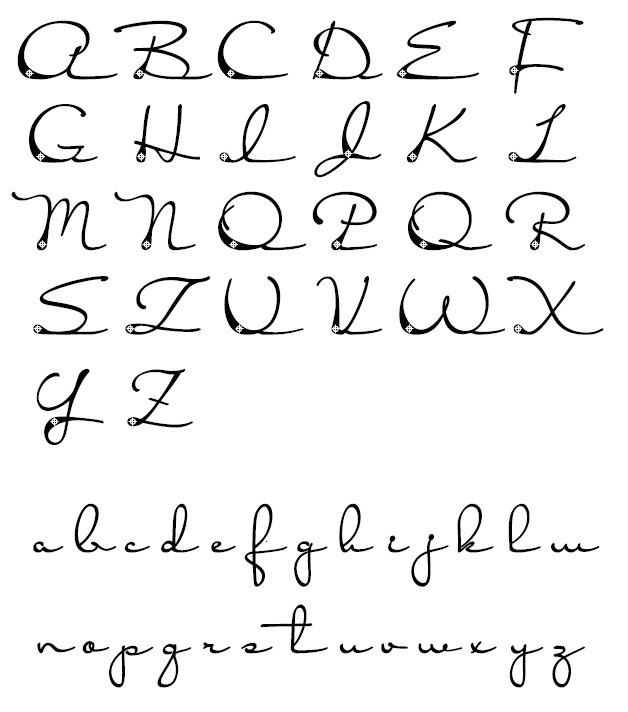 A B C D E F
G H I J K L
M N O P Q R
S T U V W X
Y Z
a b c d e f g h i j k l m
n o p q r s t u v w x y z